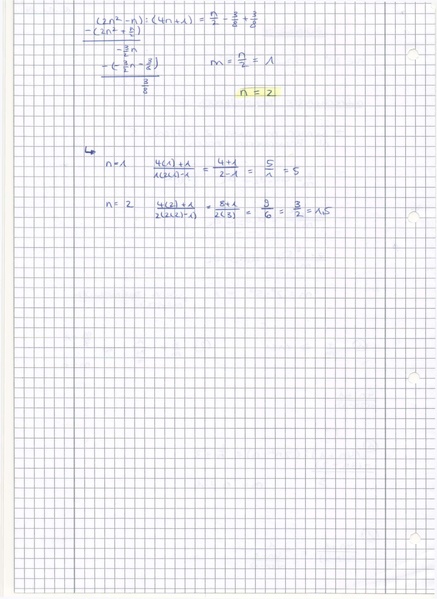 (2n² - n) : (4n + 1) = n/2 - 3/8 + 3/8
-(2n² + n/2)
-3/2n
m = n/2 = 1
-(-3/2n - 3/8)
3/8
n = 2
↳
n=1 4(1)+1/1(2(1)-1 = 4+1/2-1 = 5/1 = 5
n= 2 4(2)+1/2(2(2)-1) = 8+1/2(3) = 9/6 = 3/2 = 1,5